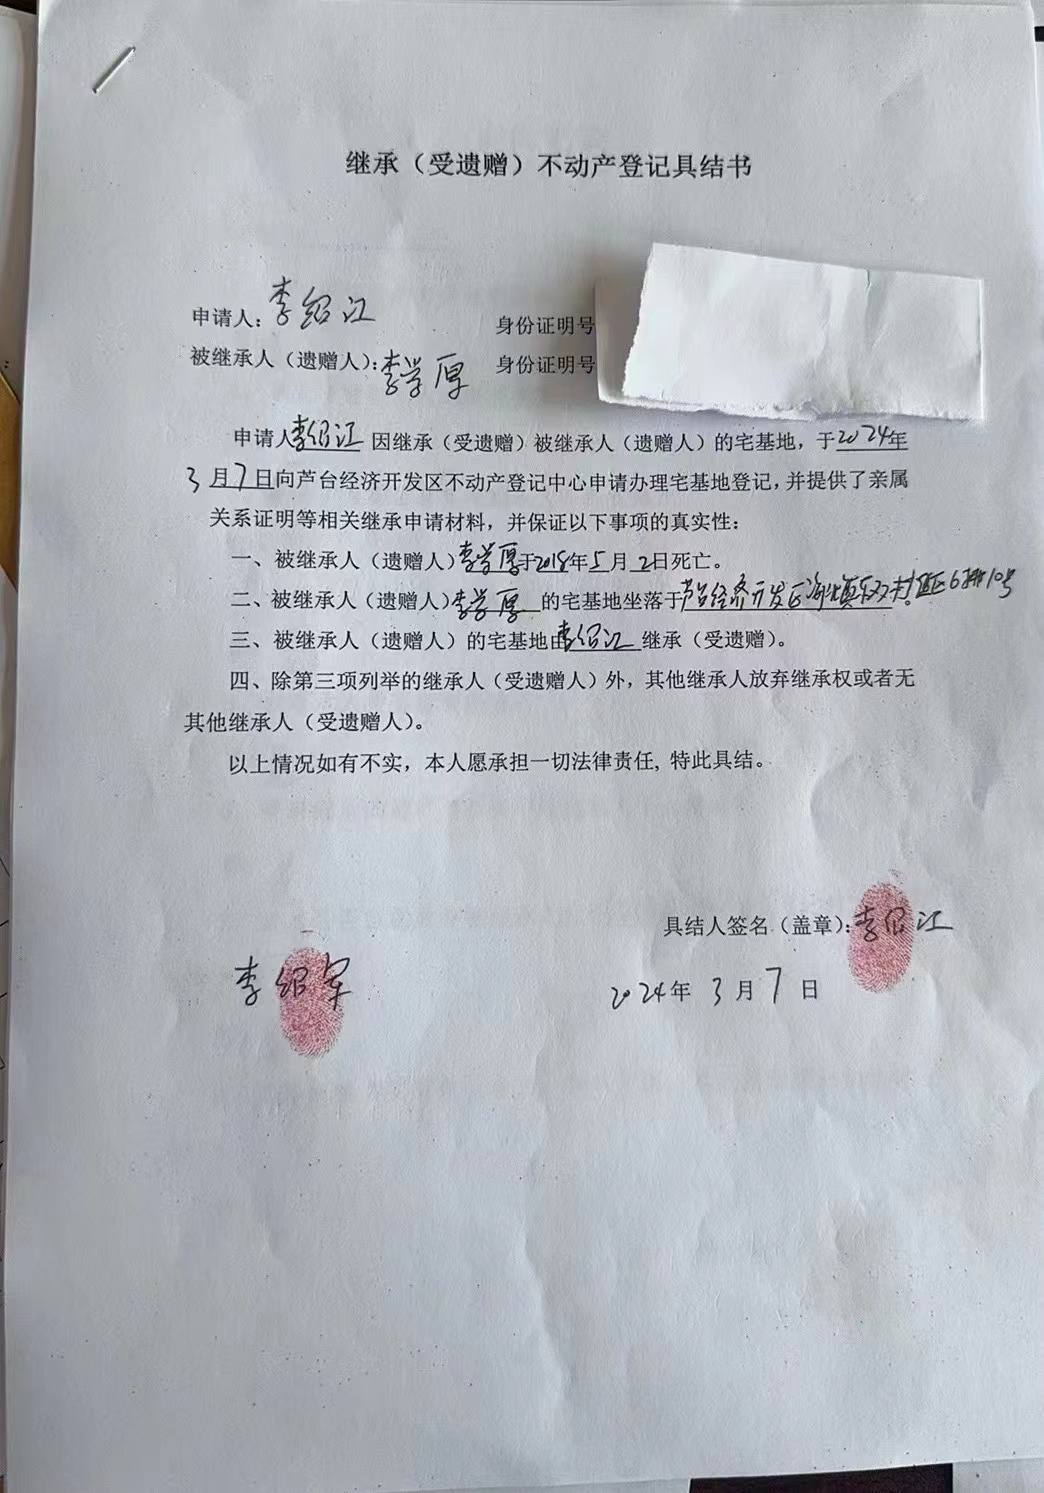 继承（受遗赠）不动产登记具结书
申请人：李绍江 身份证明号
被继承人（遗赠人）：李学厚 身份证明号
申请人李绍江因继承（受遗赠）被继承人（遗赠人）的宅基地，于2024年
3月7日向芦台经济开发区不动产登记中心申请办理宅基地登记，并提供了亲属
关系证明等相关继承申请材料，并保证以下事项的真实性：
一、被继承人（遗赠人）李学厚于2018年5月2日死亡。
二、被继承人（遗赠人）李学厚的宅基地坐落于芦台经济开发区海 区6排10号
三、被继承人（遗赠人）的宅基地由李绍江继承（受遗赠）。
四、除第三项列举的继承人（受遗赠人）外，其他继承人放弃继承权或者无
其他继承人（受遗赠人）。
以上情况如有不实，本人愿承担一切法律责任，特此具结。
具结人签名（盖章）：李绍江
李绍军
2024年3月7日